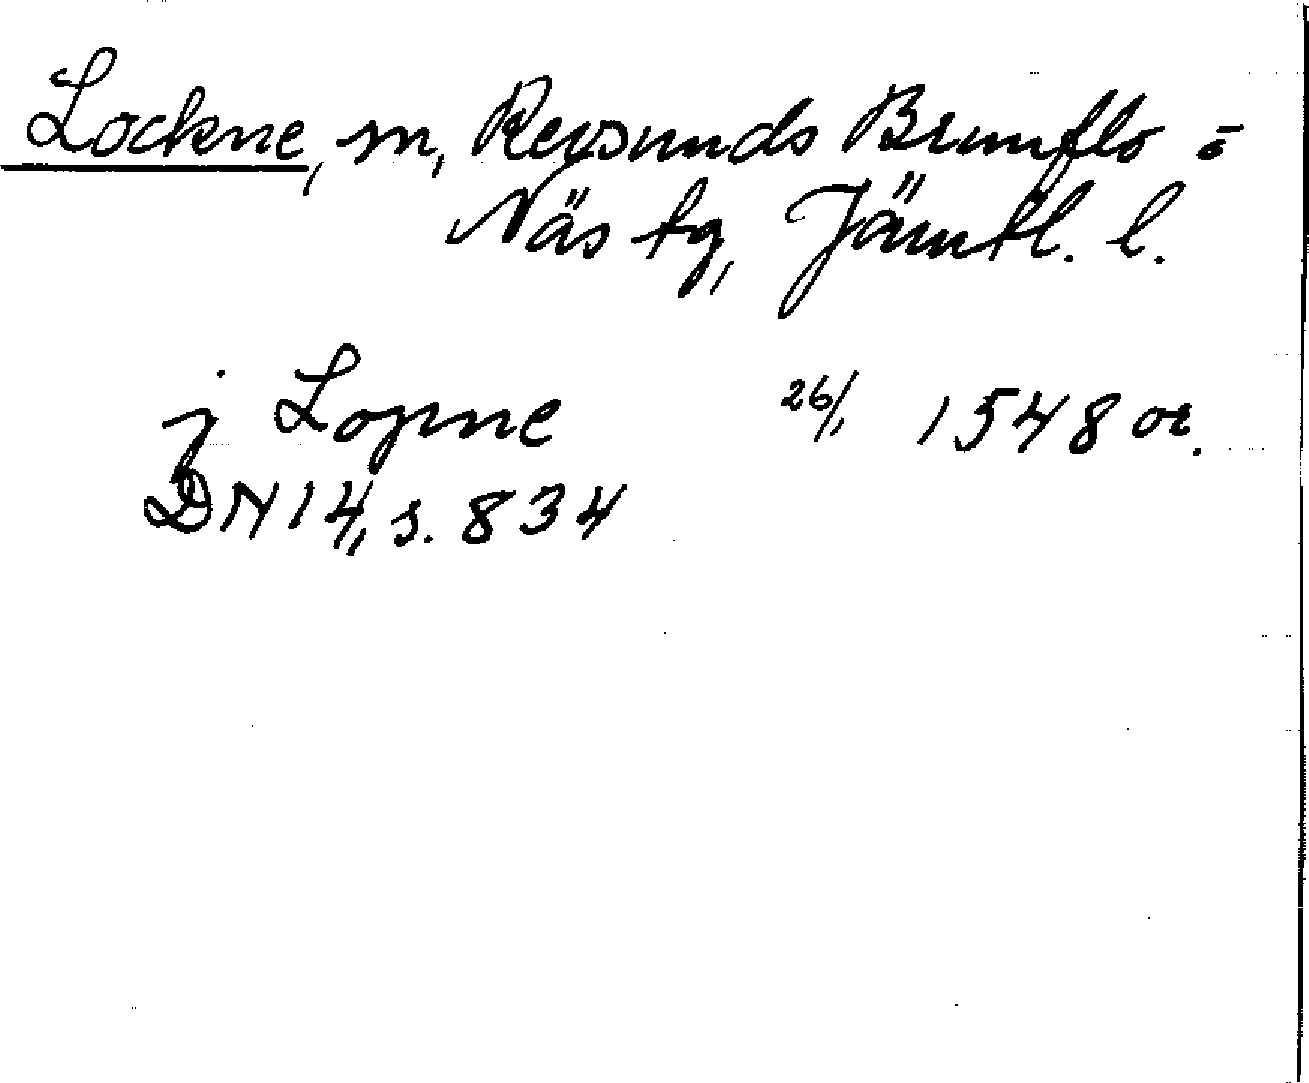 Lockne, sn, Revsunds Brunflo o
Näs tg, Jämtl. l.
j Lopne 26/1 1548 or.
DN 14, s. 834